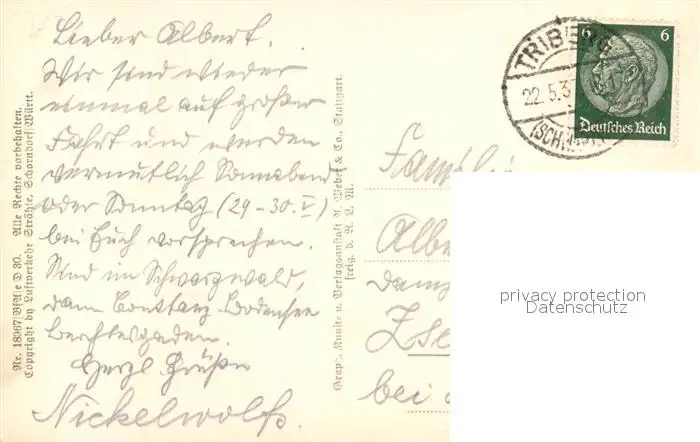 Lieber Albert.
Wir sind wieder
einmal auf großer
Fahrt und werden
vermutlich Sonnabend
oder Sonntag (29-30.V)
bei Euch vorsprechen.
Sind im Schwarzwald,
dann Constanz-Bodensee
Berchtesgaden.
Herzl Grüße
Nickelwolfs.
Nr. 18967 BfA e D 30. Alle Rechte vorbehalten.
Copyright by Luftverkehr Strähle, Schorndorf/Württ.
Graph. Kunst- u. Verlagsanstalt A. Weber & Co., Stuttgart.
freig. d. R. L. M.
TRIBERG
22.5.3
(SCHW
6 6
Deutsches Reich
Familie
Albe
Zse
bei
privacy protection
Datenschutz